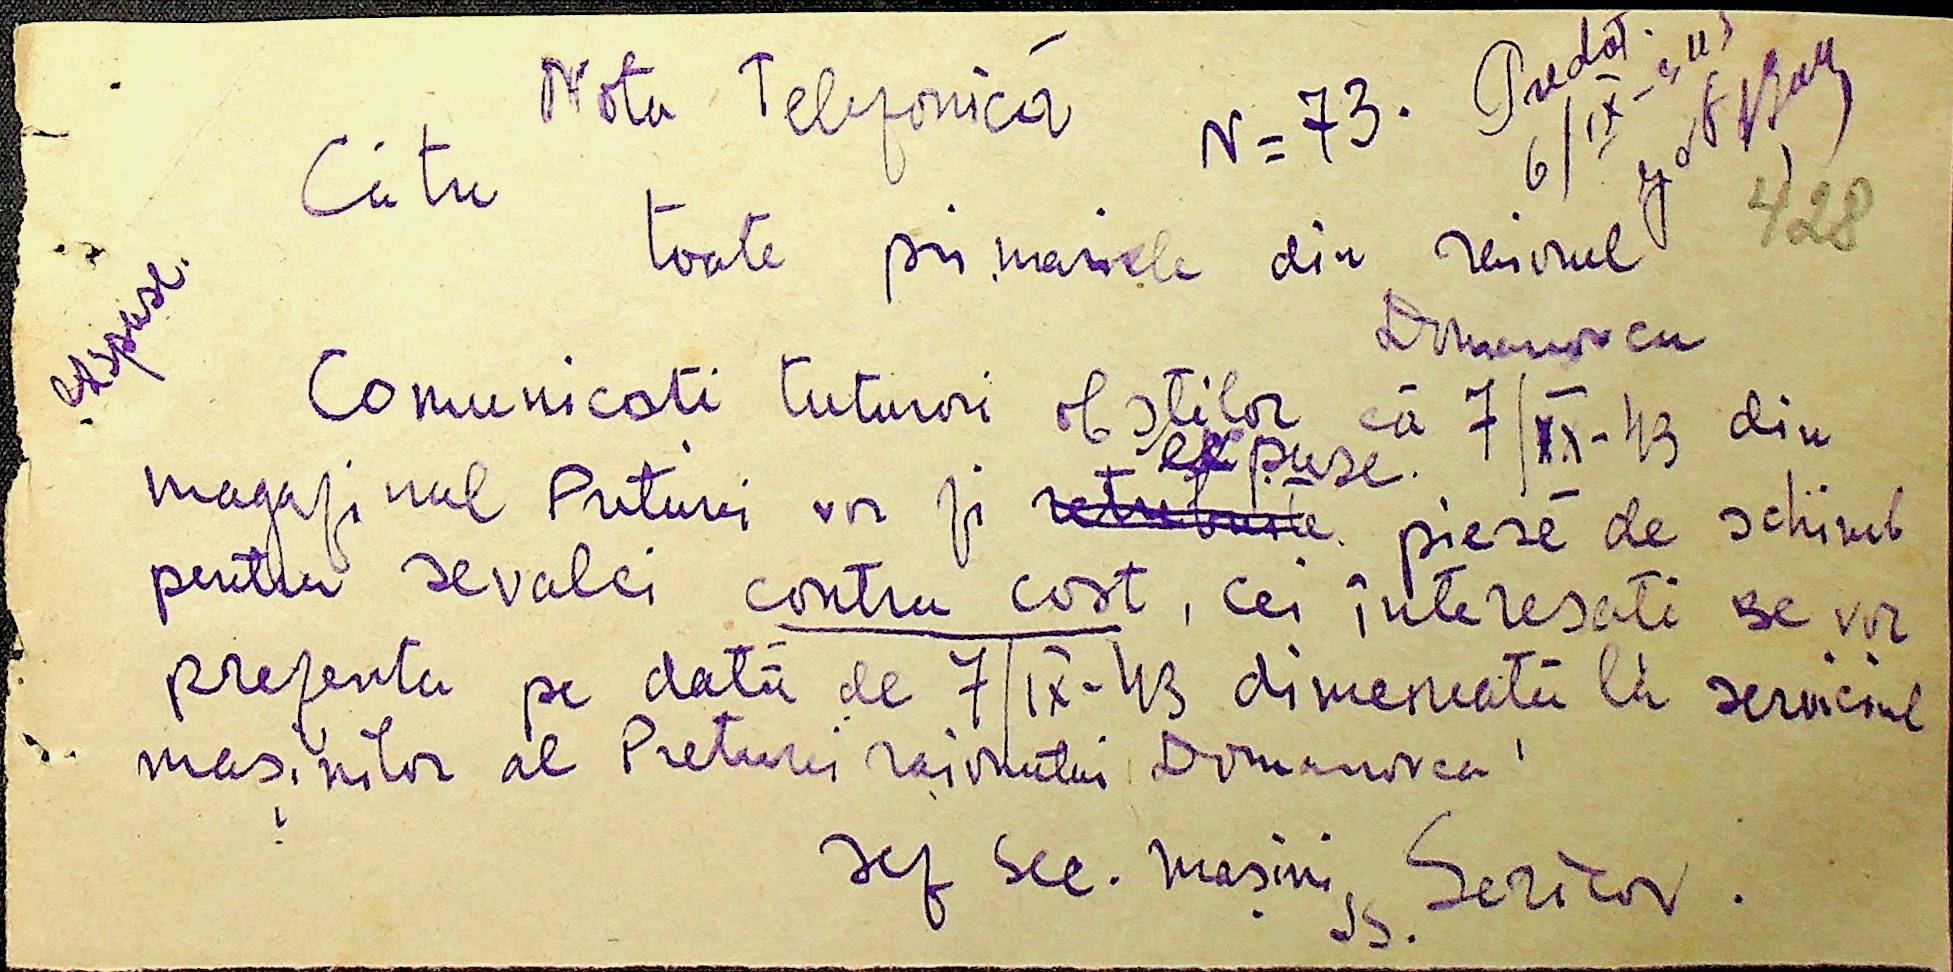 Nota Telefonică
N = 73.
Predat.
6/IX-
428
Cátre
toate primariele din raionul
Domanovca
expuse.
Comunicati tuturori obstilor că 7/IX-43 din
expuse.
magazinul Preturei vor fi piese de schimb
pentru sevalci contra cost, cei interesati se vor
prezenta pe dată de 7/IX-43 dimeneată la serviciul
mașinilor al Preturei raionului Domanovca
Sef Sec. mașini
ss. Sericov.